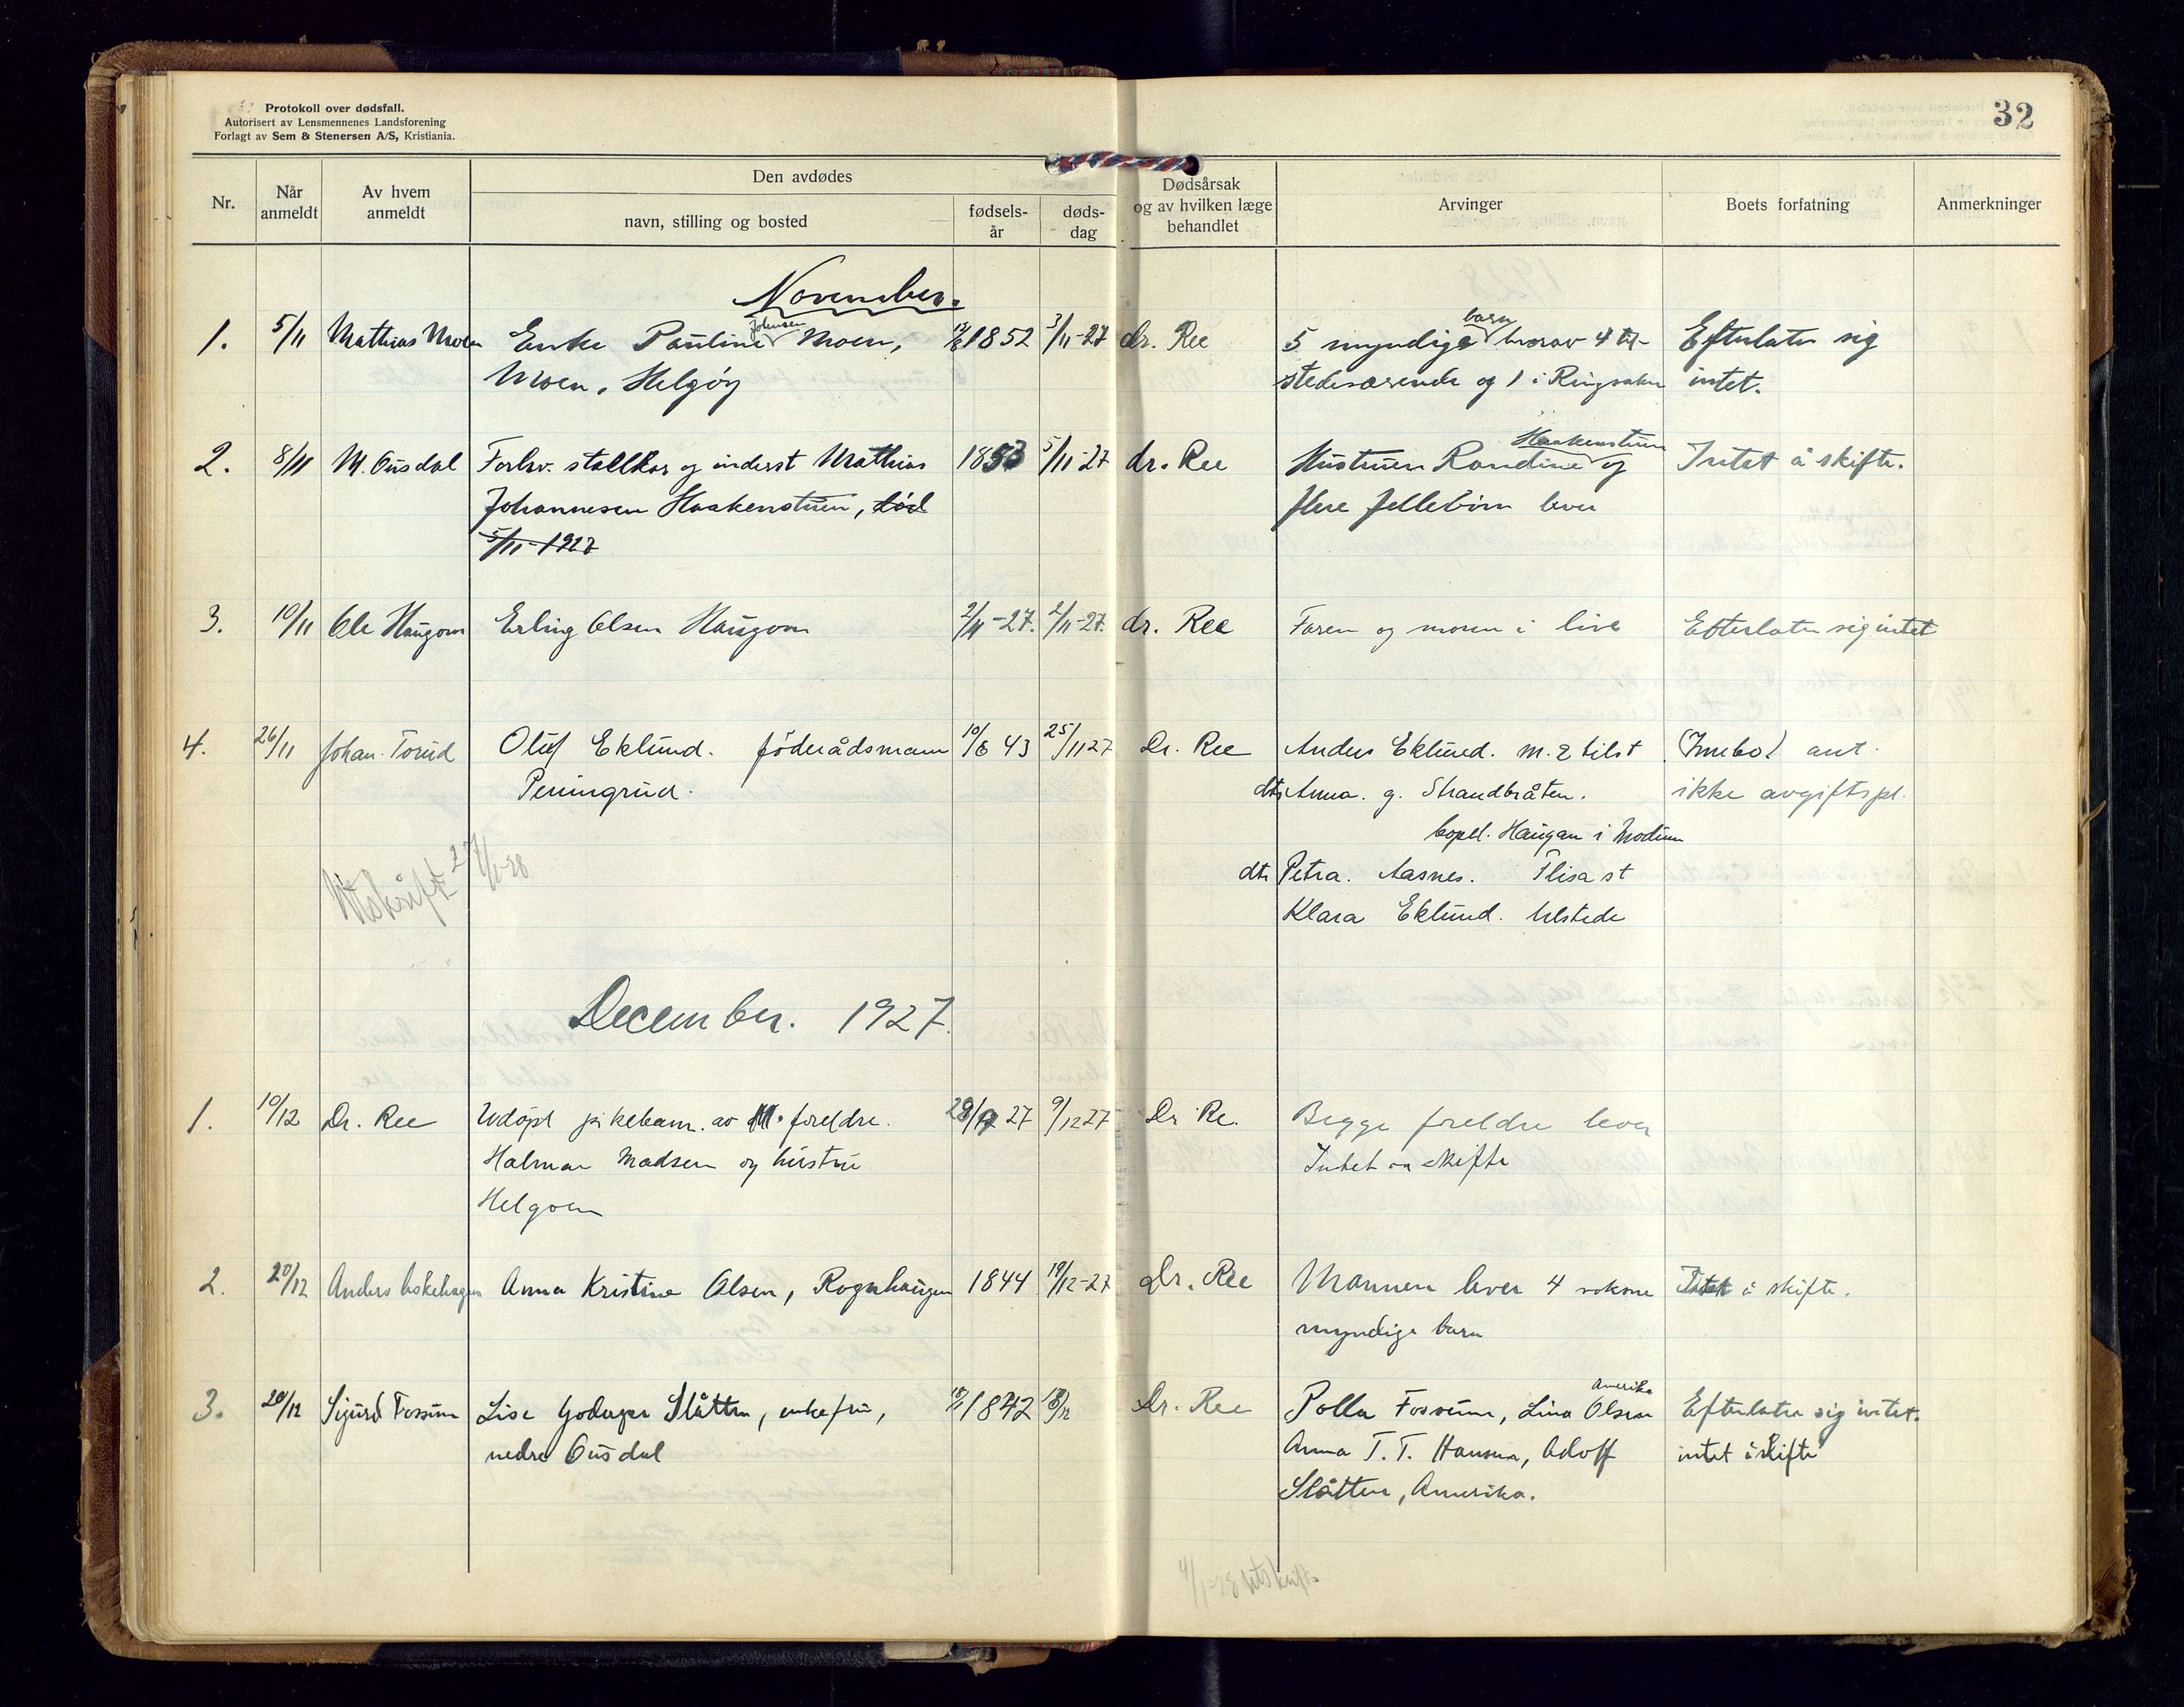 Protokoll over dødsfall.
Autorisert av Lensmennenes Landsforening
Forlagt av Sem & Stenersen A/S, Kristiania.
32
Nr.
Når anmeldt
Av hvem anmeldt
Den avdødes
navn, stilling og bosted
fødsels-år
døds-dag
Dødsårsak og av hvilken læge behandlet
Arvinger
Boets forfatning
Anmerkninger
November.
1. 5/11 Mathias Moen Enke Pauline Johnsen Moen, 1852 3/11-27 dr. Ree 5 myndige barn hvorav 4 til- Efterlater sig
Moen, Helgøy stedeværende og 1 i Ringsaker intet.
2. 8/11 M. Ousdal Forhv. stallkar og inderst Mathias 1853 5/11-27 dr. Ree Hustruen Randine Haakenstuen og Intet å skifte.
Johannesen Haakenstuen, død flere fellebörn lever
5/11-1927
3. 10/11 Ole Haugom Erling Olsen Haugom 2/11-27. 2/11-27. dr. Ree Faren og moren i live Efterlater sig intet
4. 26/11 Johan Torud Oluf Eklund. föderådsmann 10/6 43 25/11 27 Dr. Ree Anders Eklund. m. 2 tilst
Peningrud. dtr Anna. g. Strandbråten. ikke avgiftspl.
bopel. Haugan i Modum
Utskrift 27/1-28 dtr Petra. Aasnes. Flisa st
Klara Eklund. tilstede
December. 1927.
1. 10/12 Dr. Ree Udöpt pikebarn. av foreldre. 27 9/12 27 Dr Re. Begge foreldre lever
Halmar Madsen og hustru Intet aa skifte
Helgoen
2. 20/12 Anders Askehagen Anna Kristine Olsen, Rognhaugen 1844 19/12-27 Dr. Ree Mannen lever 4 voksne Intet å skifte.
myndige barn
3. 20/12 Sigurd Fossum Lise Godager Slåtten, enkefru, 1842 18/12 Dr. Ree Polla Fossum, Lina Olsen Amerika Efterlater sig intet.
nedre Ousdal Anna T. T. Hansen, Adolf intet å skifte
Slåtten, Amerika.
4/1-28 utskrift.